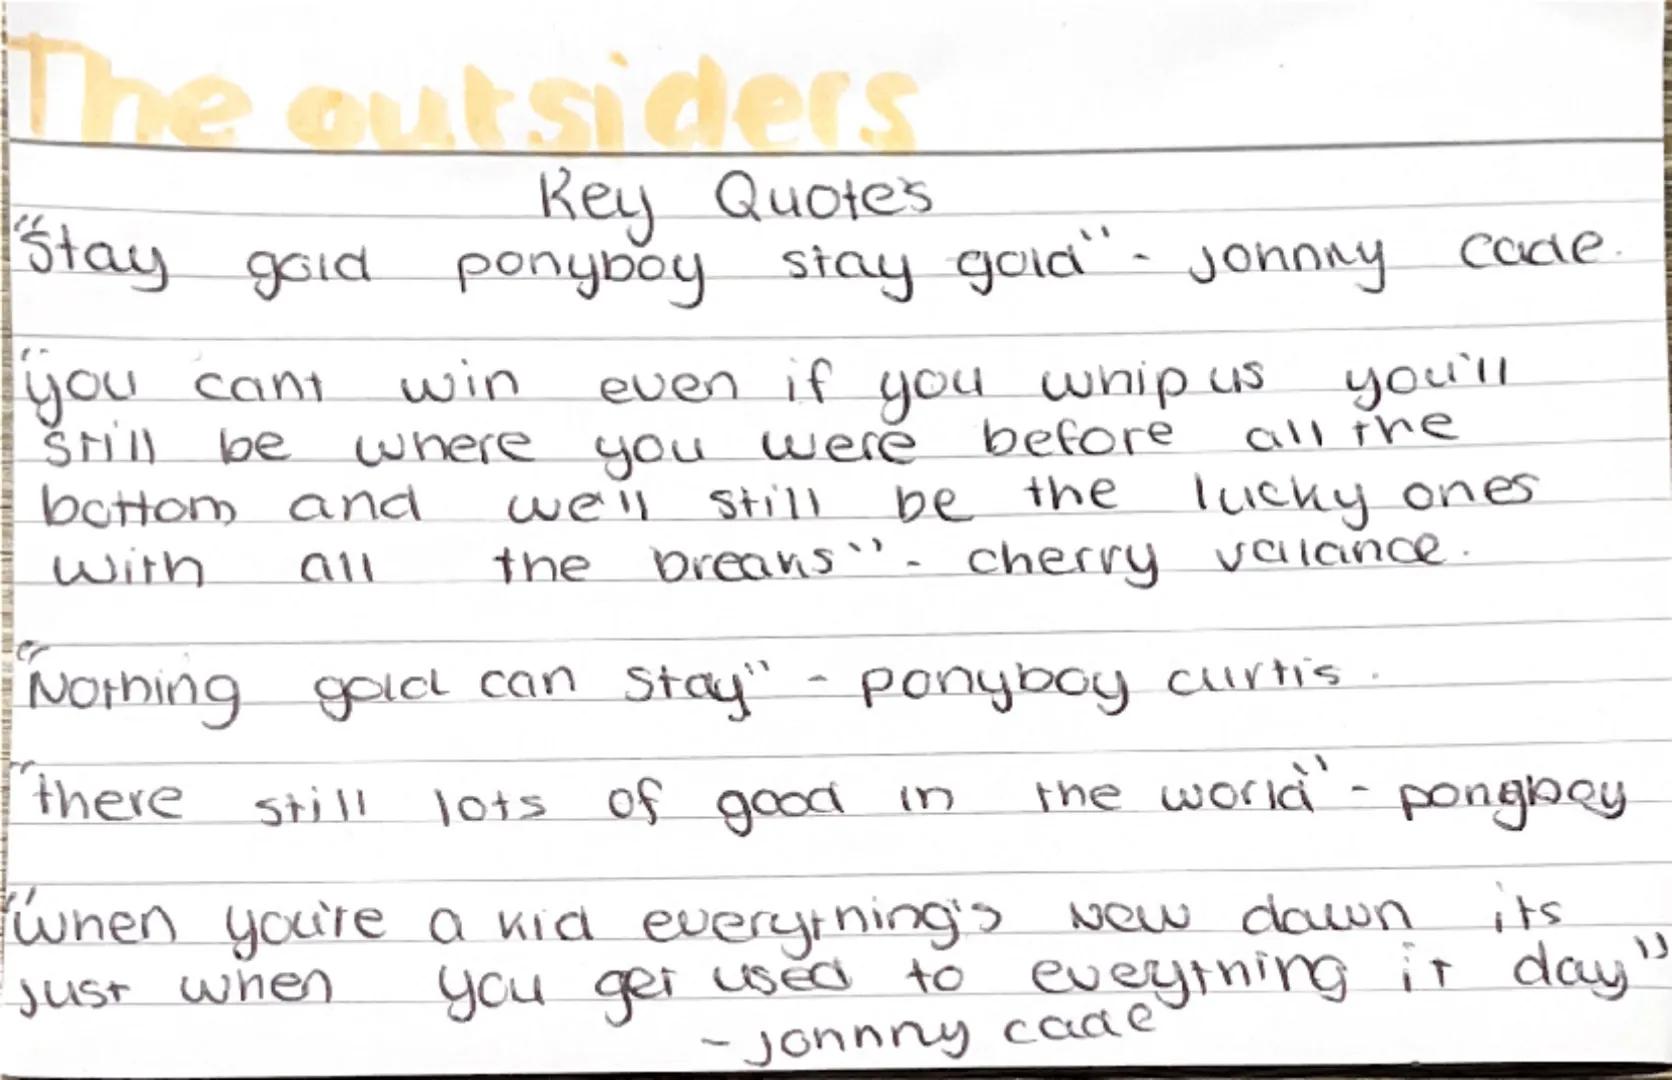 The outsiders
Key Quotes
"Stay gold ponyboy stay gold" - Johnny cade.
"you cant win even if you whip us you'll
still be where you were before all the
bottom and we'll still be the lucky ones
with all the breaks" - cherry valance.
"Nothing gold can stay" - ponyboy curtis.
"there still lots of good in the world" - pongboy
"when you're a kid everything's New dawn its
just when you get used to eveything it day"
- Johnny cade